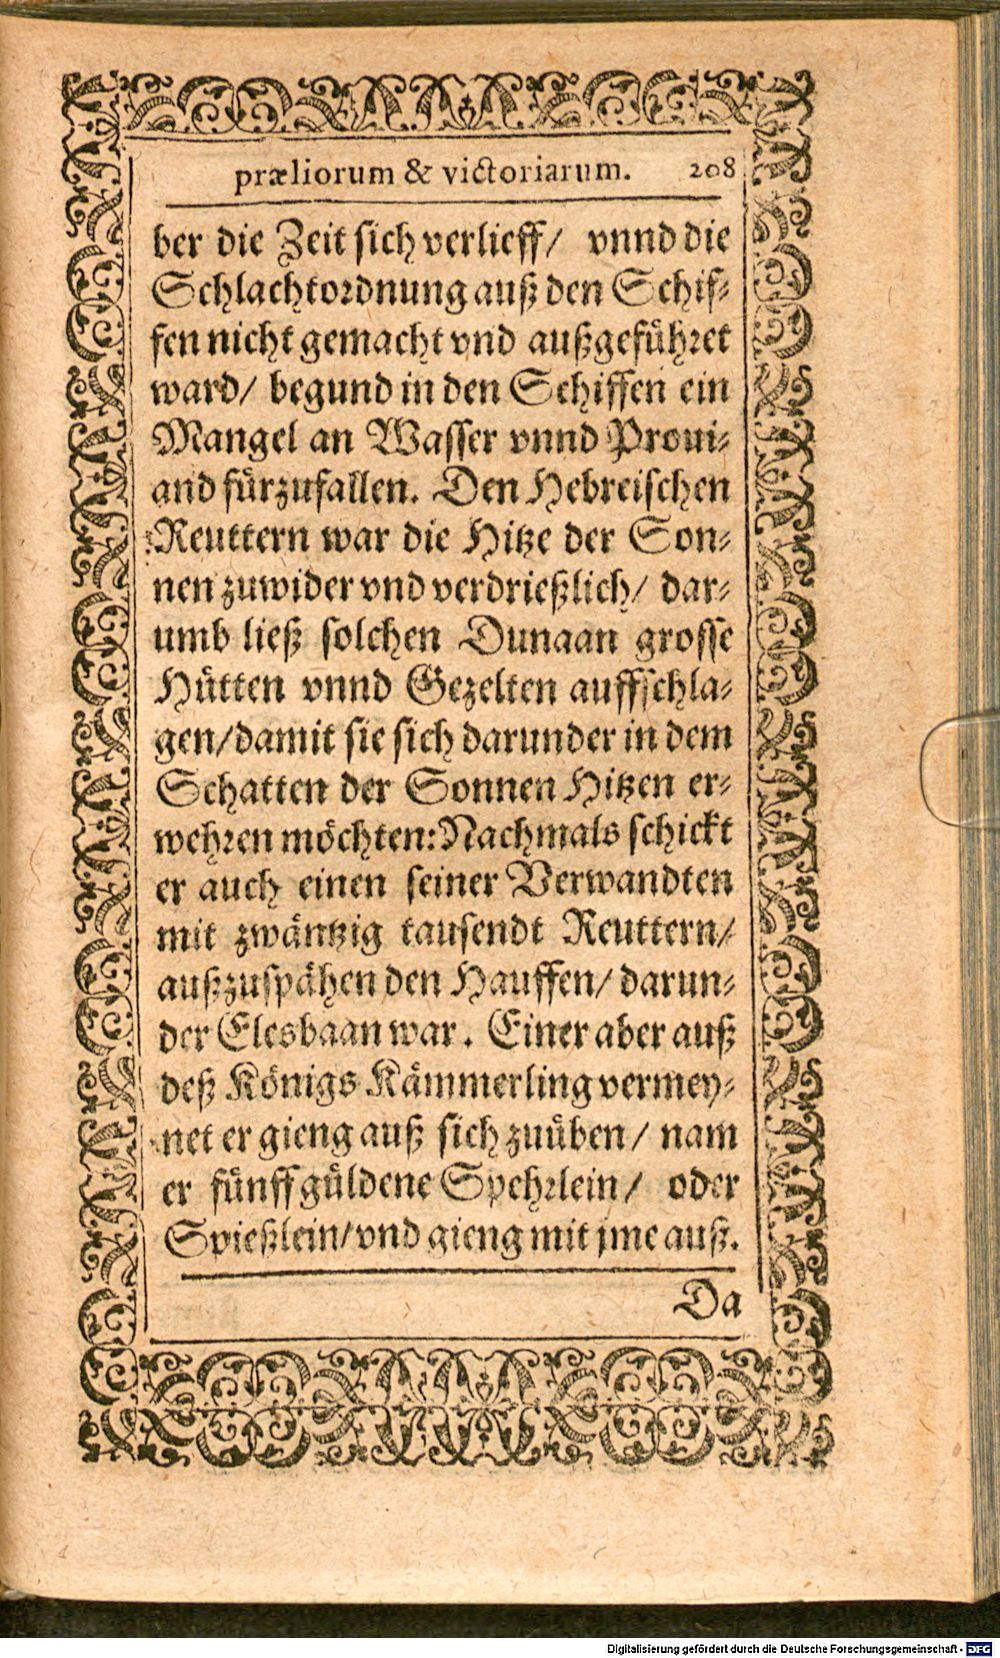 præliorum & victoriarum. 208
ber die Zeit sich verlieff/ vnnd die
Schlachtordnung auß den Schif-
fen nicht gemacht vnd außgeführet
ward/ begund in den Schiffen ein
Mangel an Wasser vnnd Proui-
and fürzufallen. Den Hebreischen
Reuttern war die Hitze der Son-
nen zuwider vnd verdrießlich/ dar-
umb ließ solchen Dunaan grosse
Hütten vnnd Gezelten auffschla-
gen/damit sie sich darunder in dem
Schatten der Sonnen Hitzen er-
wehren möchten: Nachmals schickt
er auch einen seiner Verwandten
mit zwäntzig tausendt Reuttern/
außzuspähen den Hauffen/ darun-
der Elesbaan war. Einer aber auß
deß Königs Kämmerling vermey-
net er gieng auß sich zuüben/ nam
er fünff güldene Spehrlein/ oder
Spießlein/vnd gieng mit jme auß.
Da
Digitalisierung gefördert durch die Deutsche Forschungsgemeinschaft - DFG